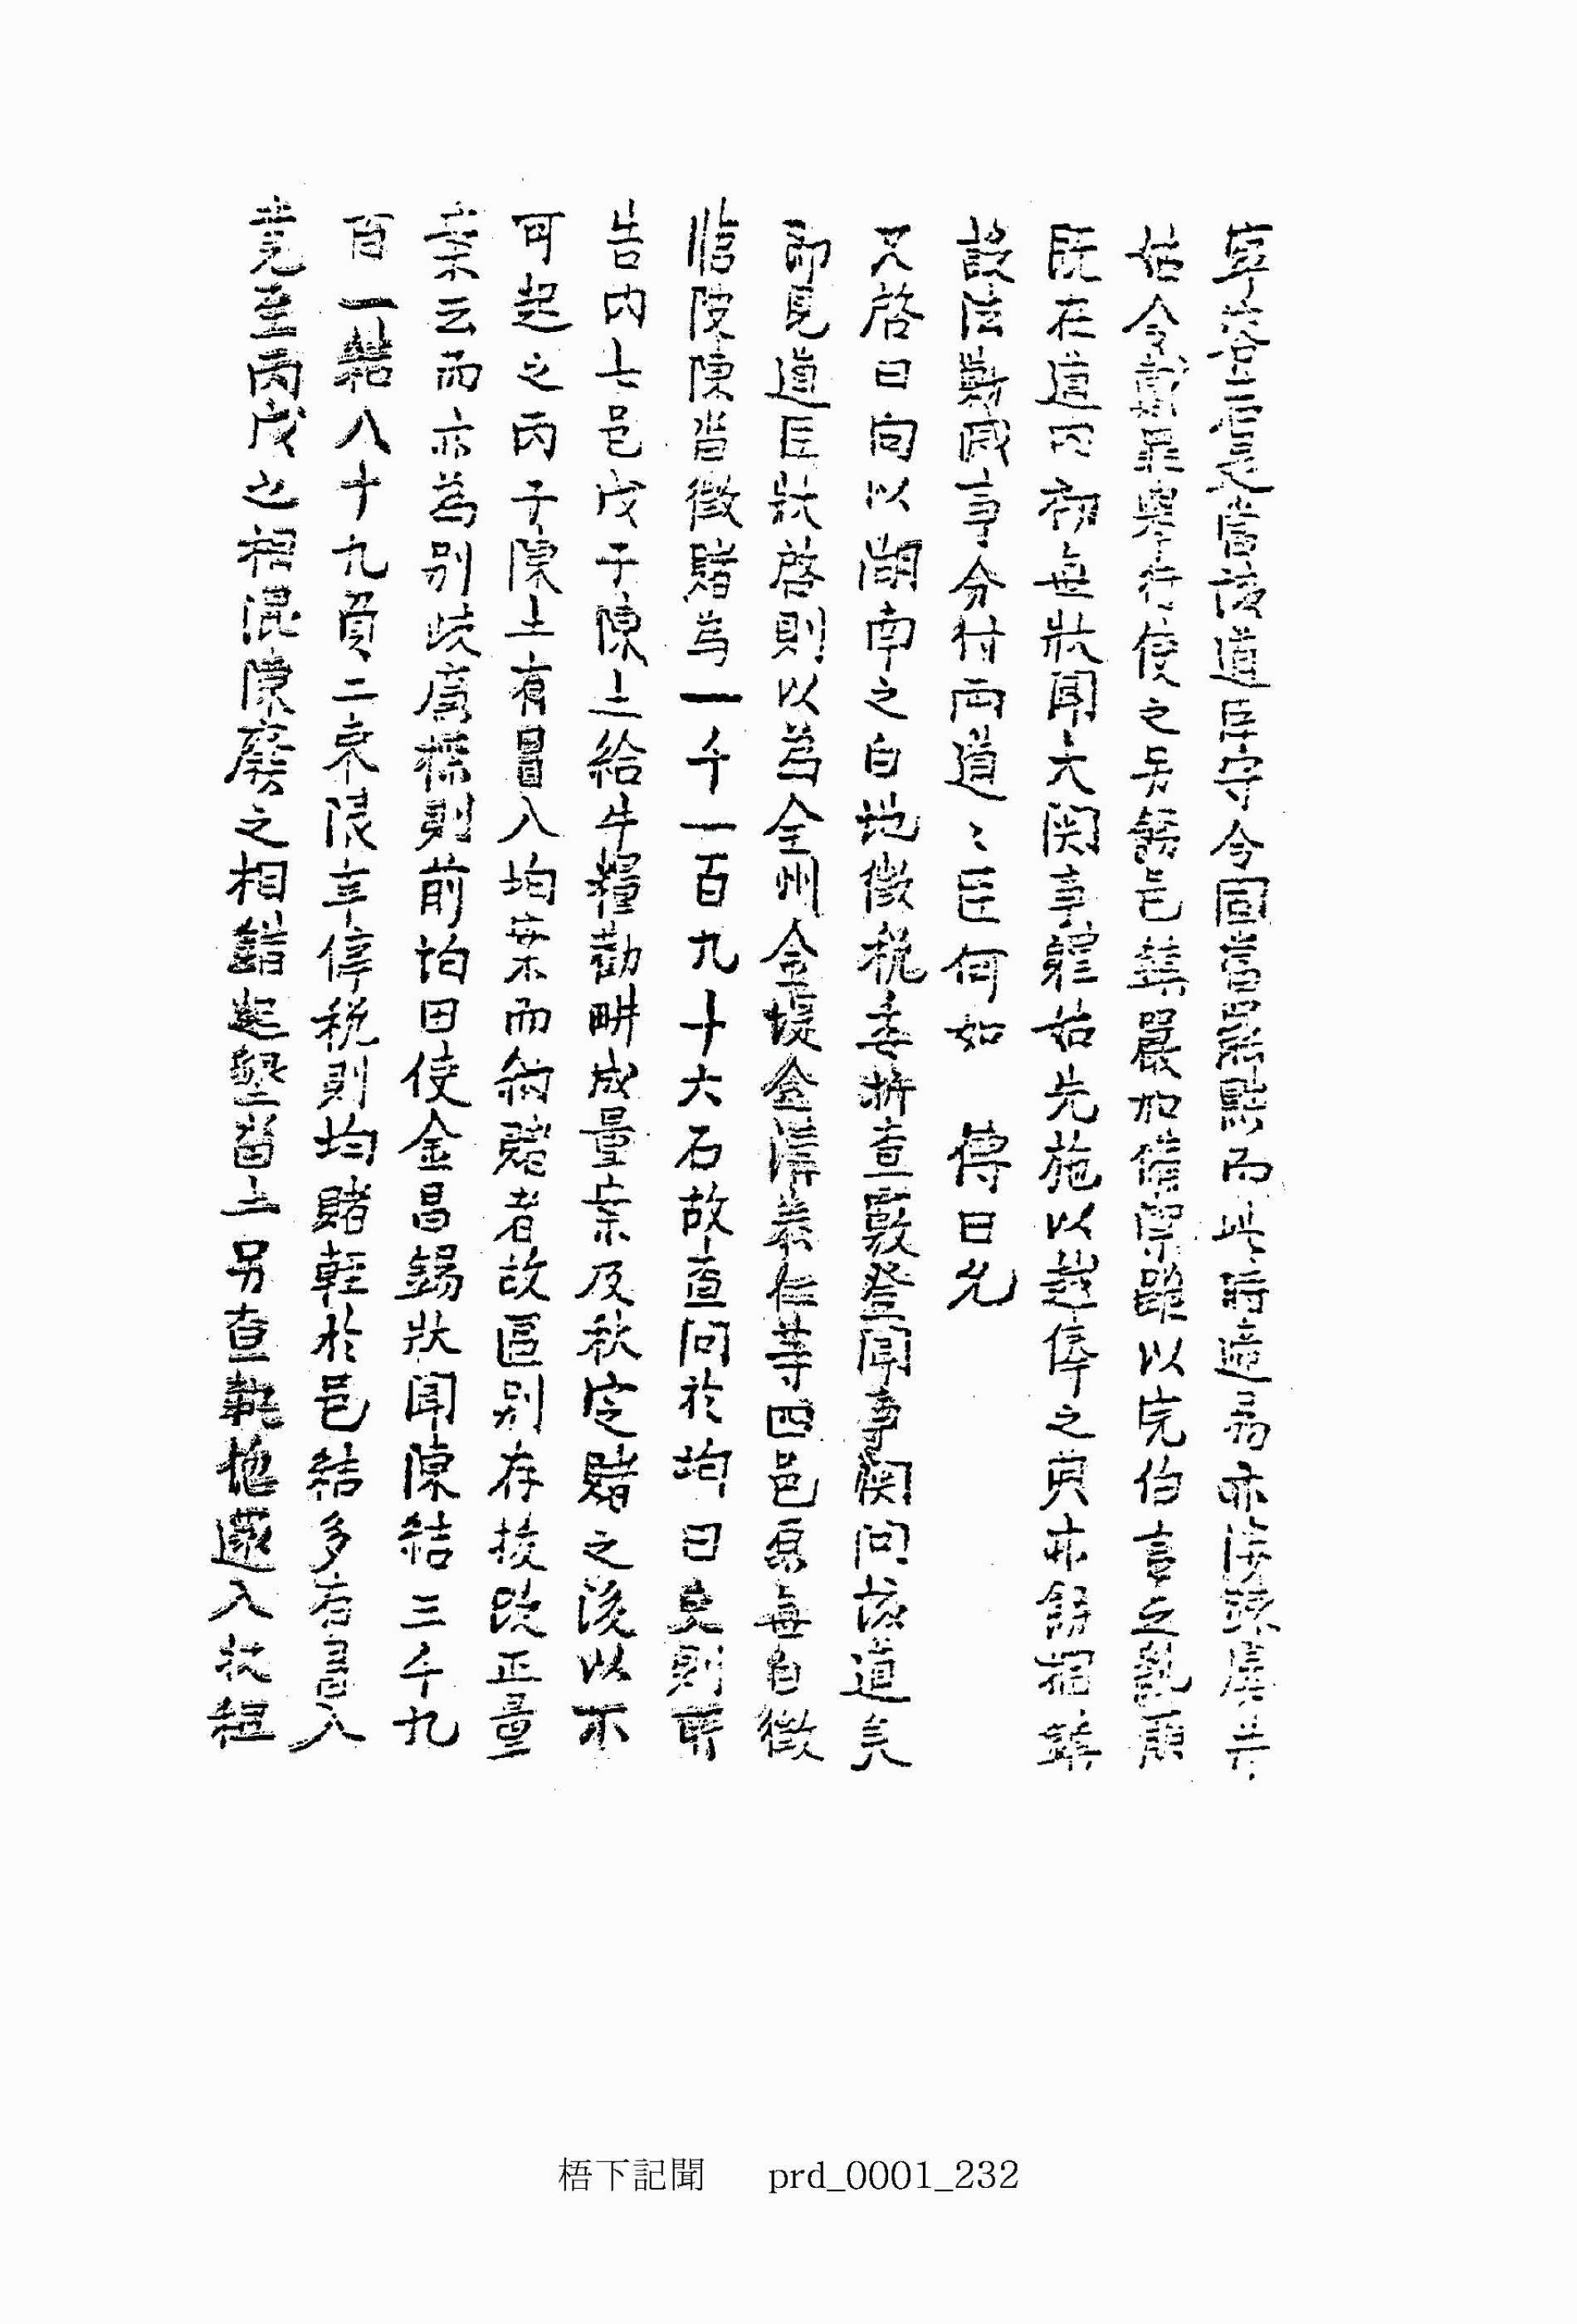 寧容一示是當該道臣守令固當譴黜而此時遞易亦涉疎虞并
姑令戴罪舉行使之另飭邑鎭嚴加備禦雖以完伯言之亂形
旣在道內初無狀聞大關事體姑先施以越俸之典亦飭招
設法勦滅事分付兩道〻臣何如 傳曰允
又啓曰向以湖南之白地徵稅委折査覈登聞事關問該道矣
卽見道臣狀啓則以爲全州金堤金溝泰仁等四邑原無白徵
臨陂陳畓徵賭爲一千一百九十六石故直問於均田吏則所
告內七邑戊子陳土給牛糧勸畊成量案及秋定賭之後以不
可起之丙子陳土有冒入均案而納賭者故區別存拔改正量
案云而亦爲別岐廣探則前均田使金昌錫狀聞陳結三千九
百一結八十九負二束限年停稅則均賭輕於邑結多有冒入
竟至丙戊之相混陳廢之相錯起墾畓土另査執摠還入收租
梧下記聞 prd_0001_232